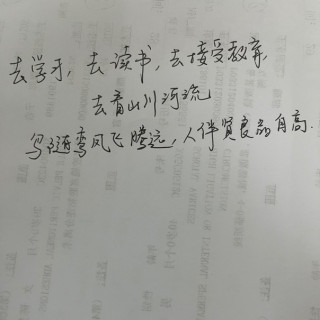 去学习,去读书,去接受教育,
去看山川河流
鸟随鸾凤飞腾远,人伴贤良品自高.